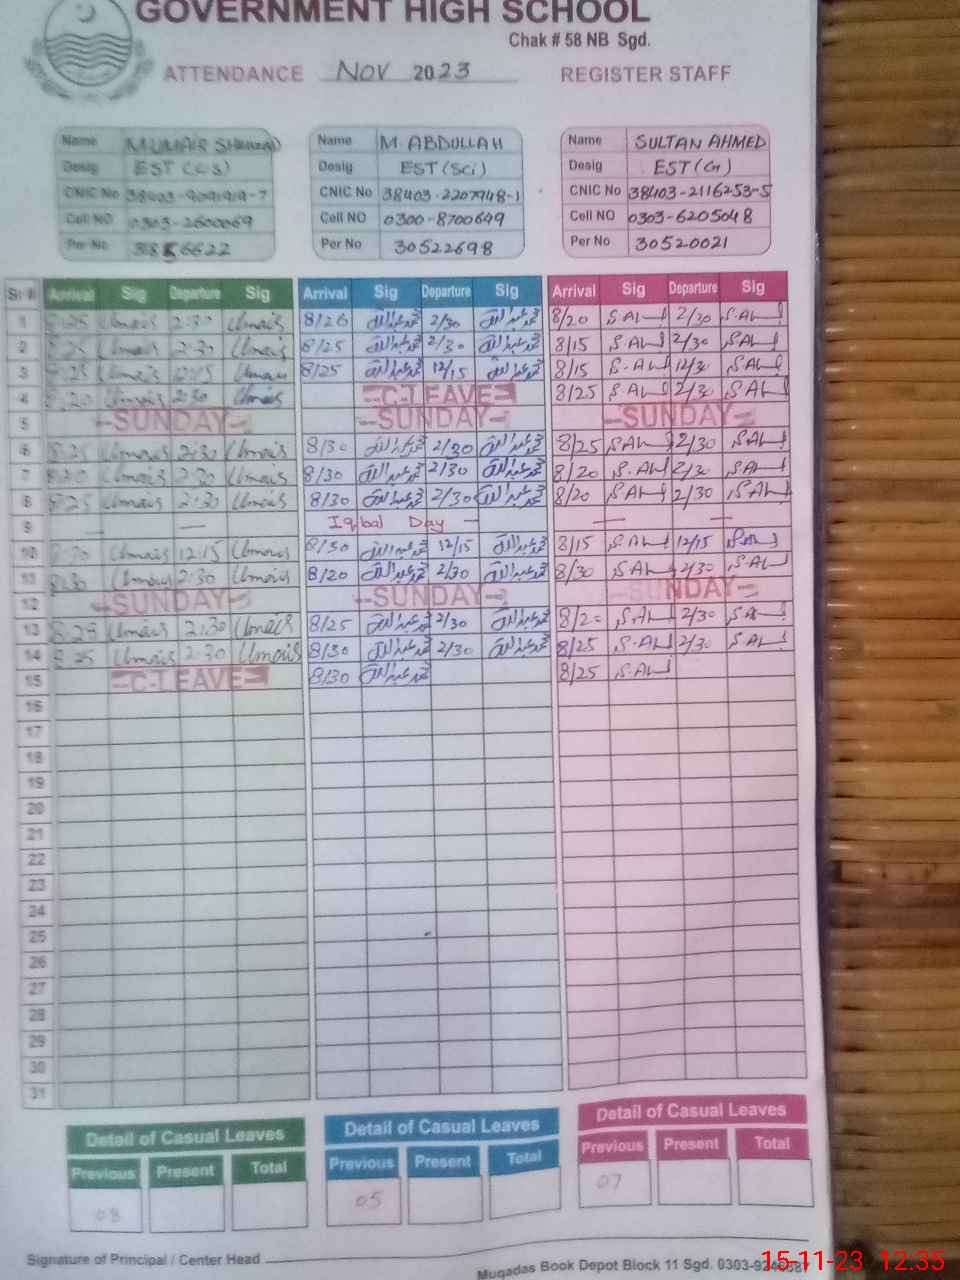 GOVERNMENT HIGH SCHOOL
Chak # 58 NB Sgd.
ATTENDANCE Nov 2023 REGISTER STAFF
Name M.UMAIR Name M. ABDULLAH Name SULTAN AHMED
Desig EST (C.S) Desig EST (Sci) Desig EST (G)
CNIC No CNIC No 38403-2207948-1 CNIC No 38403-2116253-5
Cell NO 0303-2600069 Cell NO 0300-8700649 Cell NO 0303-6205048
Per No Per No 30522698 Per No 30520021
Sr # Arrival Sig Departure Sig Arrival Sig Departure Sig Arrival Sig Departure Sig
1 Umais 2:30 Umais 8/20 محمد عبداللہ 2/30 محمد عبداللہ 8/20 S.AH 2/30 S.AH
2 Umais 2:30 Umais 8/25 محمد عبداللہ 2/30 محمد عبداللہ 8/15 S.AH 2/30 S.AH
3 Umais 12:15 Umais 8/25 محمد عبداللہ 12/15 محمد عبداللہ 8/15 S.AH 12/30 S.AH
4 Umais 2:30 Umais C-LEAVE 8/25 S.AH 2/30 S.AH
5 SUNDAY SUNDAY SUNDAY
6 8:25 Umais 2:30 Umais 8/30 محمد عبداللہ 2/30 محمد عبداللہ 8/25 S.AH 2/30 S.AH
7 Umais 2:30 Umais 8/30 محمد عبداللہ 2/30 محمد عبداللہ 8/20 S.AH 2/30 S.AH
8 8:25 Umais 2:30 Umais 8/30 محمد عبداللہ 2/30 محمد عبداللہ 8/20 S.AH 2/30 S.AH
9 — — Iqbal Day — — —
10 Umais 12:15 Umais 8/30 محمد عبداللہ 12/15 محمد عبداللہ 8/15 S.AH 12/15 S.AH
11 Umais 2:30 Umais 8/20 محمد عبداللہ 2/30 محمد عبداللہ 8/30 S.AH 2/30 S.AH
12 SUNDAY SUNDAY SUNDAY
13 8:25 Umais 2:30 Umais 8/25 محمد عبداللہ 2/30 محمد عبداللہ 8/20 S.AH 2/30 S.AH
14 8:25 Umais 2:30 Umais 8/30 محمد عبداللہ 2/30 محمد عبداللہ 8/25 S.AH 2/30 S.AH
15 C-LEAVE 8/30 محمد عبداللہ 8/25 S.AH
16
17
18
19
20
21
22
23
24
25
26
27
28
29
30
31
Detail of Casual Leaves Detail of Casual Leaves Detail of Casual Leaves
Previous Present Total Previous Present Total Previous Present Total
03 05 07
Signature of Principal / Center Head
Muqadas Book Depot Block 11 Sgd.
15-11-23 12:35